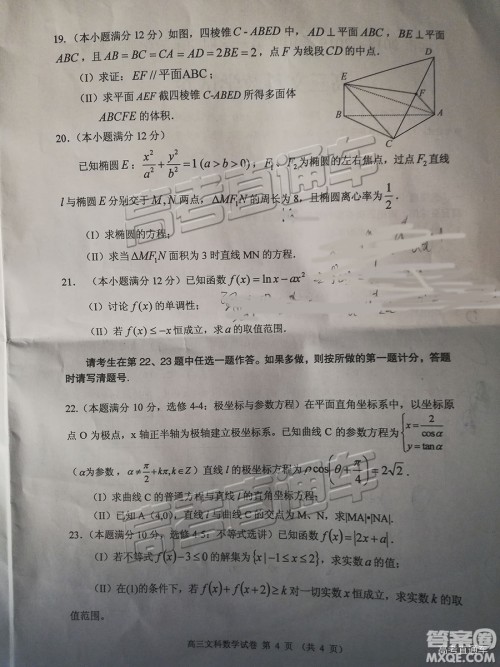 19.(本小题满分 12 分)如图,四棱锥 C - ABED 中,AD⊥平面ABC,BE⊥平面
ABC,且 AB=BC=CA=AD=2BE=2,点 F 为线段 CD 的中点.
(Ⅰ)求证:EF//平面ABC;
(Ⅱ)求平面 AEF 截四棱锥 C-ABED 所得多面体
ABCFE 的体积.
D
E
F
B
A
C
20.(本小题满分 12 分)
已知椭圆 E:x²/a²+y²/b²=1(a>b>0),F₁、F₂为椭圆的左右焦点,过点 F₂直线
l 与椭圆 E 分别交于 M,N 两点,ΔMF₁N 的周长为 8,且椭圆离心率为 1/2.
(Ⅰ)求椭圆的方程;
(Ⅱ)求当 ΔMF₁N 面积为 3 时直线 MN 的方程.
21.(本小题满分 12 分)已知函数 f(x)=ln x-ax²
(Ⅰ)讨论 f(x) 的单调性;
(Ⅱ)若 f(x)≤-x 恒成立,求 a 的取值范围.
请考生在第 22、23 题中任选一题作答。如果多做,则按所做的第一题计分,答题
时请写清题号.
22.(本题满分 10 分,选修 4-4:极坐标与参数方程)在平面直角坐标系中,以坐标原
点 O 为极点,x 轴正半轴为极轴建立极坐标系,已知曲线 C 的参数方程为{x=2/cosα y=tanα
(α为参数,α≠π/2+kπ,k∈Z)直线 l 的极坐标方程为 ρcos(θ+π/4)=2√2.
(Ⅰ)求曲线 C 的普通方程与直线 l 的直角坐标方程;
(Ⅱ)已知 A(4,0),直线 l 与曲线 C 的交点为 M、N,求|MA|•|NA|.
23.(本题满分 10 分,选修 4-5:不等式选讲)已知函数 f(x)=|2x+a|.
(Ⅰ)若不等式 f(x)-3≤0 的解集为 {x|-1≤x≤2},求实数 a 的值;
(Ⅱ)在(1)的条件下,若 f(x)+f(x+2)≥k 对一切实数 x 恒成立,求实数 k 的取
值范围。
高三文科数学试卷 第 4 页 (共 4 页)
高考直通车
高考直通车
高考直通车
答案圈
MXQE.COM
@高考直通车